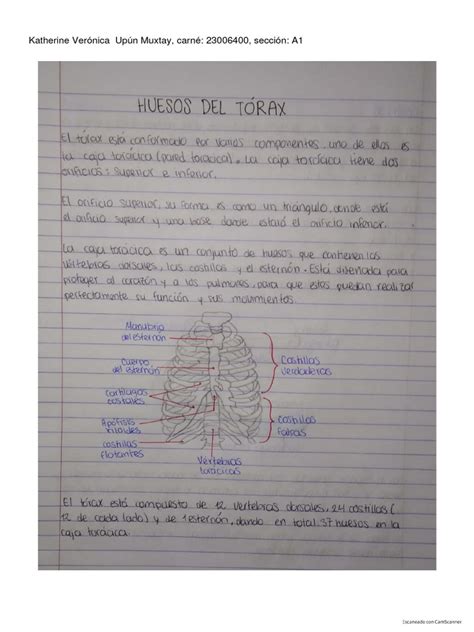 Katherine Verónica Upún Muxtay, carné: 23006400, sección: A1
HUESOS DEL TÓRAX
El tórax está conformado por varios componentes, uno de ellos es
la caja torácica (pared toracica). La caja torácica tiene dos
orificios: superior e inferior.
El orificio superior, su forma es como un triangulo, donde está
el orificio superior y una base donde estará el orificio inferior.
La caja toracica es un conjunto de huesos que contienen las
vértebras dorsales, las costillas y el esternón. Está diseñada para
proteger al corazón y a los pulmones, para que estos puedan realizar
perfectamente su función y sus movimientos.
Manubrio
del esternón
Cuerpo
del esternón
Cartílagos
costales
Apófisis
xifoides
costillas
flotantes
Costillas
verdaderas
Costillas
falsas
Vertebras
torácicas
El tórax está compuesto de 12 vertebras dorsales, 24 costillas (
12 de cada lado) y de 1 esternón, dando en total 37 huesos en la
caja torácica.
Escaneado con CamScanner